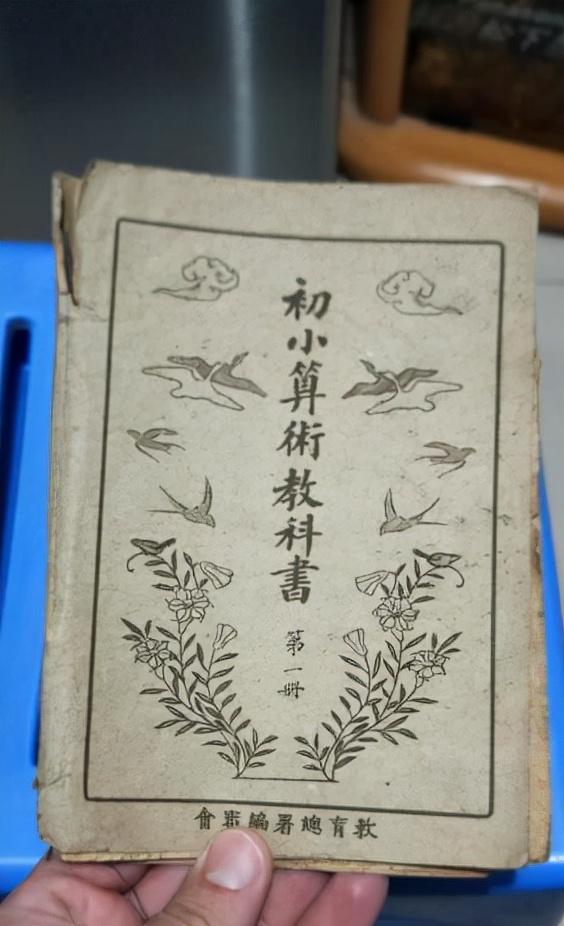 初小算術教科書
第一冊
教育總署編審會